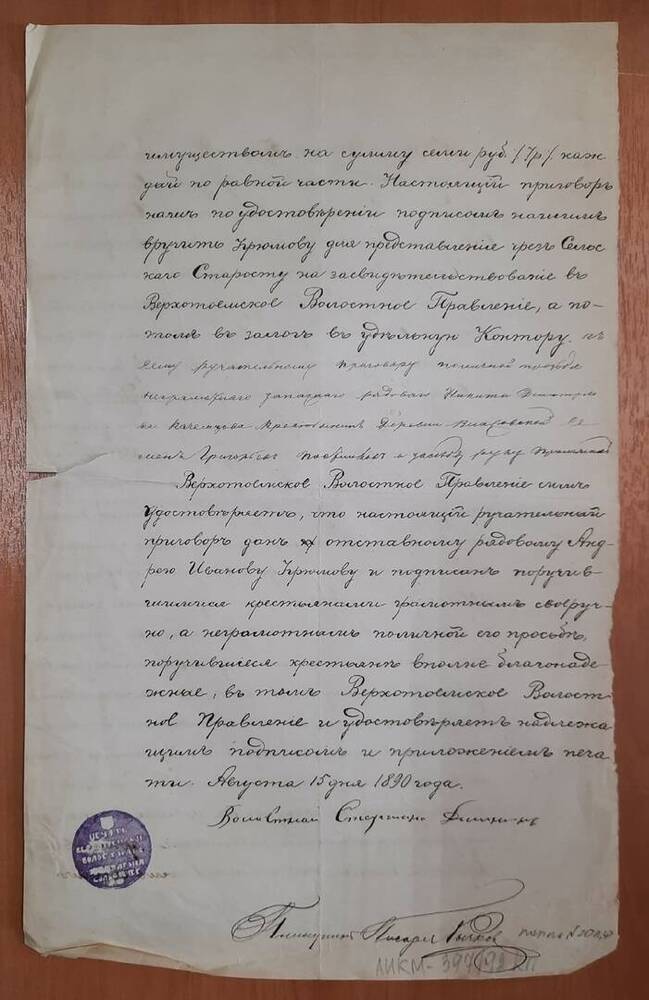 имуществомъ на сумму семи руб. /7р./ каж
дый по равной части. Настоящій приговоръ
нашъ по удостовѣреніи подписомъ нашимъ
вручить Крюмову для представленіе чрезъ Сельс
каго Старосту на засвидѣтельствованіе въ
Верхотоемское Волостное Правленіе, а по-
томъ въ залогъ въ удѣльную Контору. къ
сему ручательному приговору по личной прозьбе
неграмотнаго запаснаго рядоваго Никита
крестьянинъ Деревни Власовской Се
менъ Григорьевъ
Верхотоемское Волостное Правленіе симъ
удостовѣряетъ, что настоящій ручательный
приговоръ данъ отставному рядовому Анд-
рею Иванову Крюмову и подписанъ поручив-
шимися крестьянами грамотнымъ своеруч-
но, а неграмотнымъ по личной его просьбѣ,
поручившіеся крестьяне вполне благонаде
жные, въ томъ Верхотоемское Волост-
ное Правленіе и удостовѣряетъ надлежа
щимъ подписомъ и приложеніемъ печа
ти. Августа 15 дня 1890 года.
Волостной Старшина
Писарь
АИКМ-